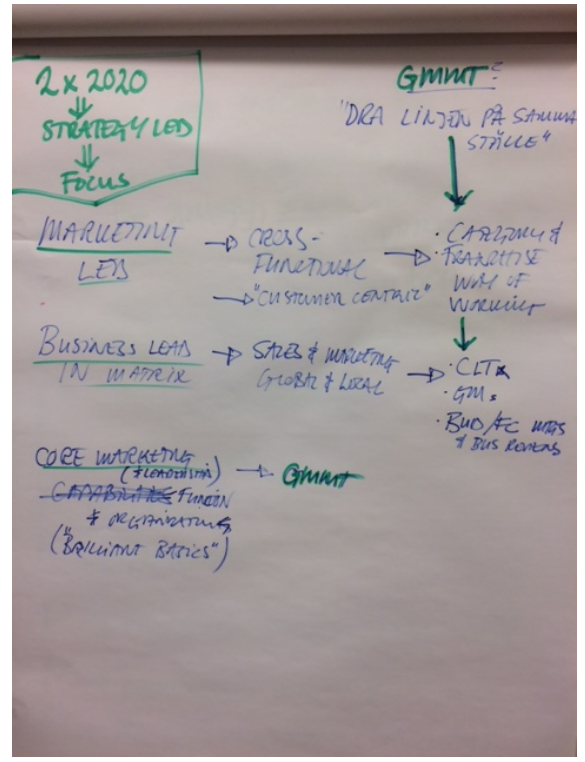 2 x 2020
⇓
STRATEGY LED
⇓
FOCUS
GMMT:
"DRA LINJEN PÅ SAMMA
STÄLLE"
MARKETING
LED
→ CROSS-
FUNCTIONAL
→ "CUSTOMER CENTRIC"
→ · CATEGORY &
· FRANCHISE
WAY OF
WORKING
BUSINESS LEAD
IN MATRIX
→ SALES & MARKETING
GLOBAL & LOCAL
→ · CLTs
· GMs
· BUD/FC MTGS
& BUS REVIEWS
CORE MARKETING
(& LEADERSHIP)
→ GMMT
CAPABILITIES FUNCTION
& ORGANIZATION
("BRILLIANT BASICS")